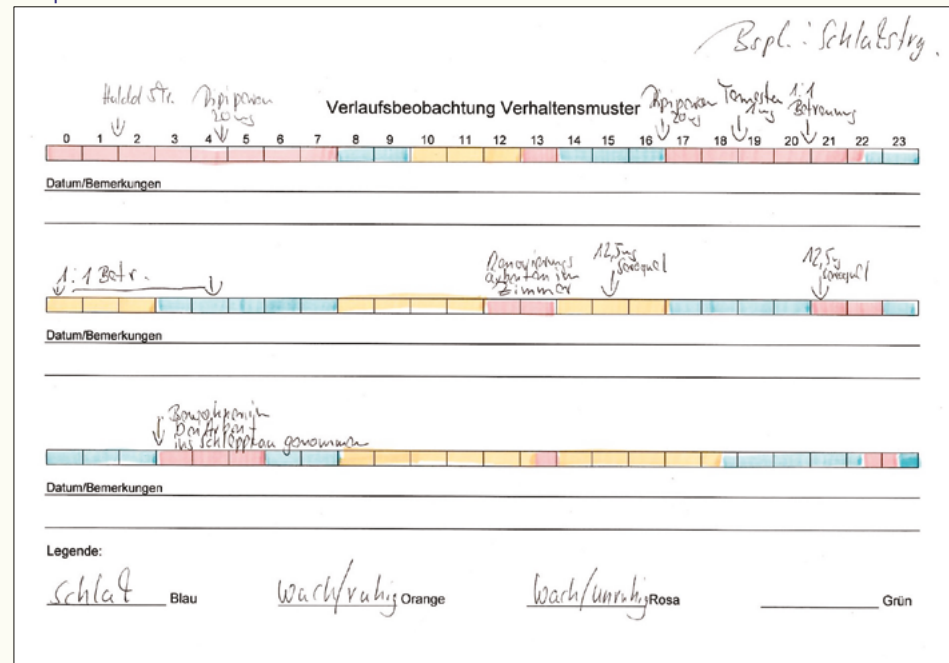 Bspl.: Schlafstrg.
Haldol Str.
Dipiperon
20mg
Verlaufsbeobachtung Verhaltensmuster
Dipiperon
20mg
1mg
1:1
Betreuung
0 1 2 3 4 5 6 7 8 9 10 11 12 13 14 15 16 17 18 19 20 21 22 23
Datum/Bemerkungen
1:1 Betr.
Renovierungs
arbeiten im
Zimmer
12,5mg
Seroquel
12,5mg
Seroquel
Datum/Bemerkungen
Bewohnerin
Bei Arbeit
ins Schlepptau genommen
Datum/Bemerkungen
Legende:
Schlaf Blau wach/ruhig Orange wach/unruhig Rosa Grün